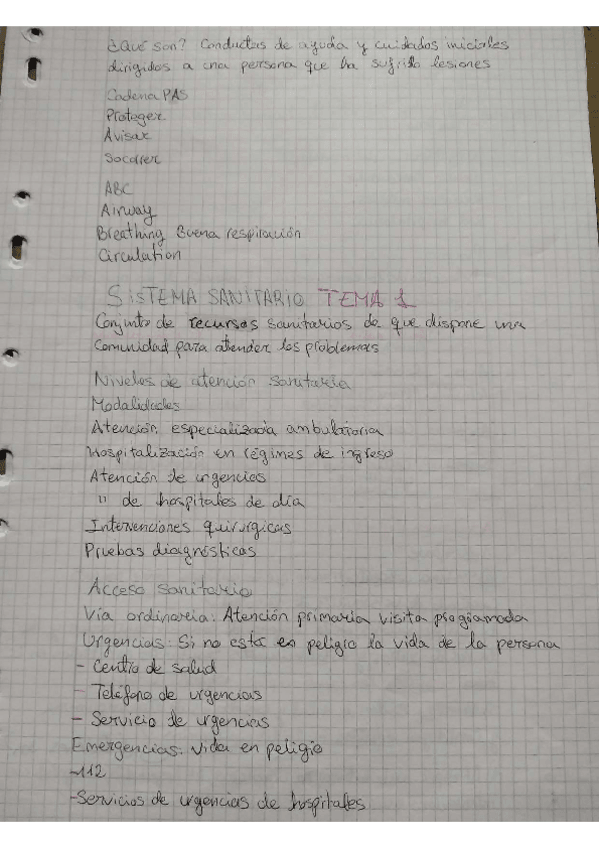 ¿Qué son? Conductas de ayuda y cuidados iniciales
dirigidos a una persona que ha sufrido lesiones
Cadena PAS
Proteger
Avisar
Socorrer
ABC
Airway
Breathing Buena respiración
Circulation
SISTEMA SANITARIO TEMA 1
Conjunto de recursos sanitarios de que dispone una
Comunidad para atender los problemas
Niveles de atención sanitaria
Modalidades
Atención especializada ambulatoria
Hospitalización en régimes de ingreso
Atención de urgencias
" de hospitales de día
Intervenciones quirurgicas
Pruebas diagnósticas
Acceso sanitario
Vía ordinaria: Atención primaria visita programada
Urgencias: Si no está en peligro la vida de la persona
- Centro de salud
- Teléfono de urgencias
- Servicio de urgencias
Emergencias: vida en peligro
-112
-Servicios de urgencias de hospitales